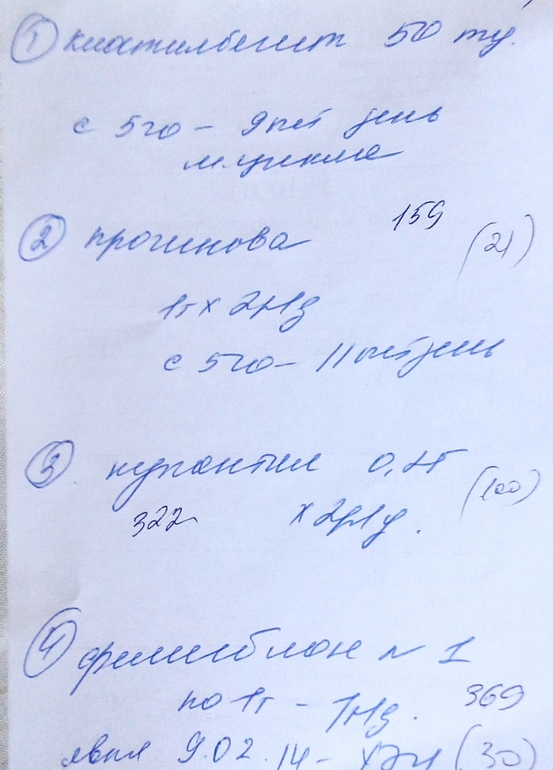 ① клостилбегит 50 mg.
с 5го - 9ый день
м. цикла
② прогинова 159 (21)
1т х 2р/д
с 5го - 11ый день
③ курантил 0,25
322 х 2р/д. (100)
④ фемибион № 1
по 1т - 1р/д. 369
явка 9.02.14 - (30)